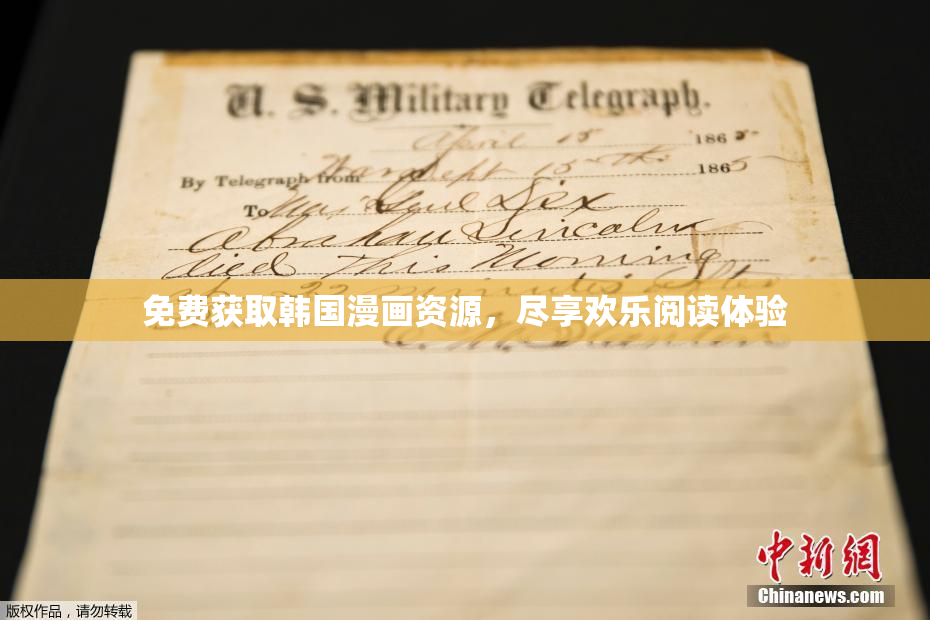 U. S. Military Telegraph.
April 15 1865
By Telegraph from War Dept 15th 1865
To Maj Genl Dix
Abraham Lincoln
died This Morning
at 22 minutes after
免费获取韩国漫画资源，尽享欢乐阅读体验
E. M. Stanton
中新網
Chinanews.com
版权作品，请勿转载